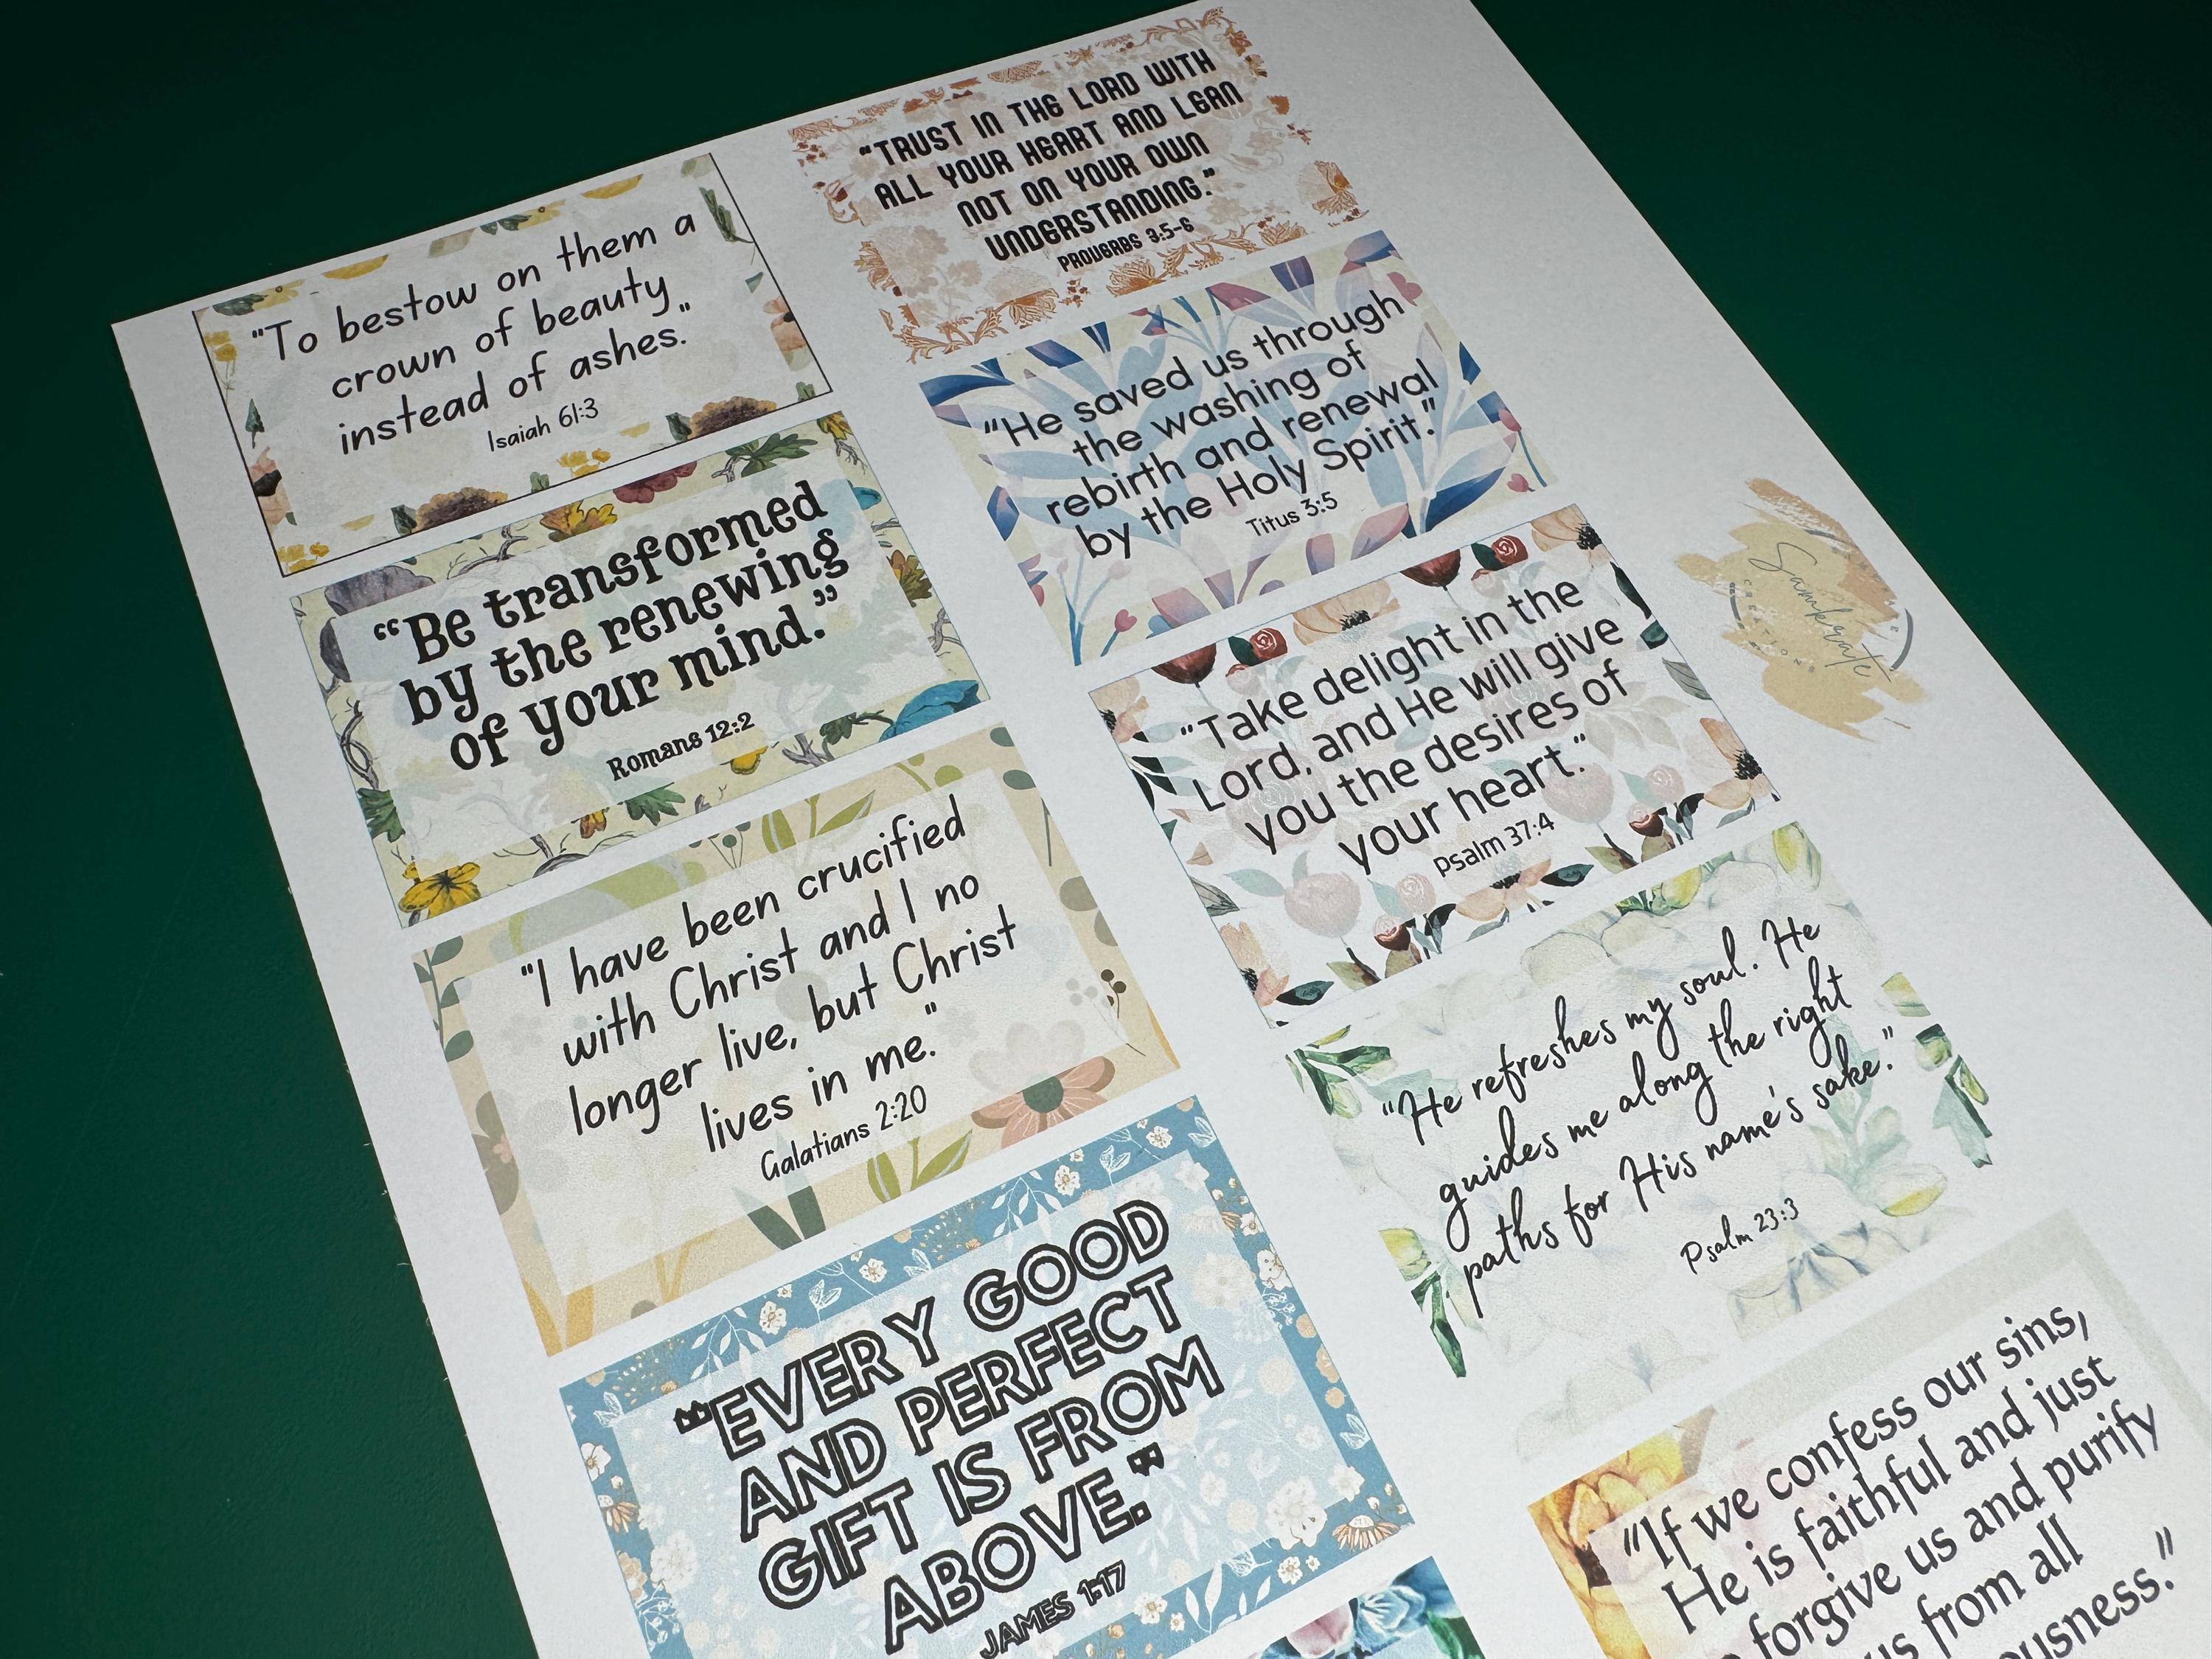 "To bestow on them a
crown of beauty
instead of ashes."
Isaiah 61:3
"Be transformed
by the renewing
of your mind."
Romans 12:2
"I have been crucified
with Christ and I no
longer live, but Christ
lives in me."
Galatians 2:20
"EVERY GOOD
AND PERFECT
GIFT IS FROM
ABOVE."
JAMES 1:17
"TRUST IN THE LORD WITH
ALL YOUR HEART AND LEAN
NOT ON YOUR OWN
UNDERSTANDING."
PROVERBS 3:5-6
"He saved us through
the washing of
rebirth and renewal
by the Holy Spirit."
Titus 3:5
"Take delight in the
Lord, and He will give
you the desires of
your heart."
Psalm 37:4
"He refreshes my soul. He
guides me along the right
paths for His name's sake."
Psalm 23:3
"If we confess our sins,
He is faithful and just
forgive us and purify
us from all